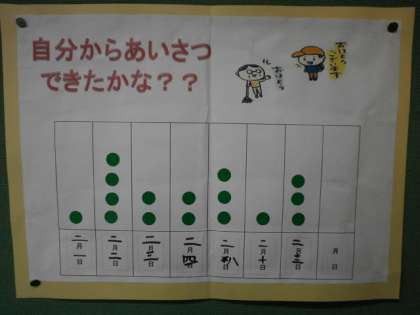 自分からあいさつ
できたかな？？
おはよう
ございます
おはよう
二月一日
二月二日
二月三日
二月四日
二月八日
二月十日
二月 日
月 日